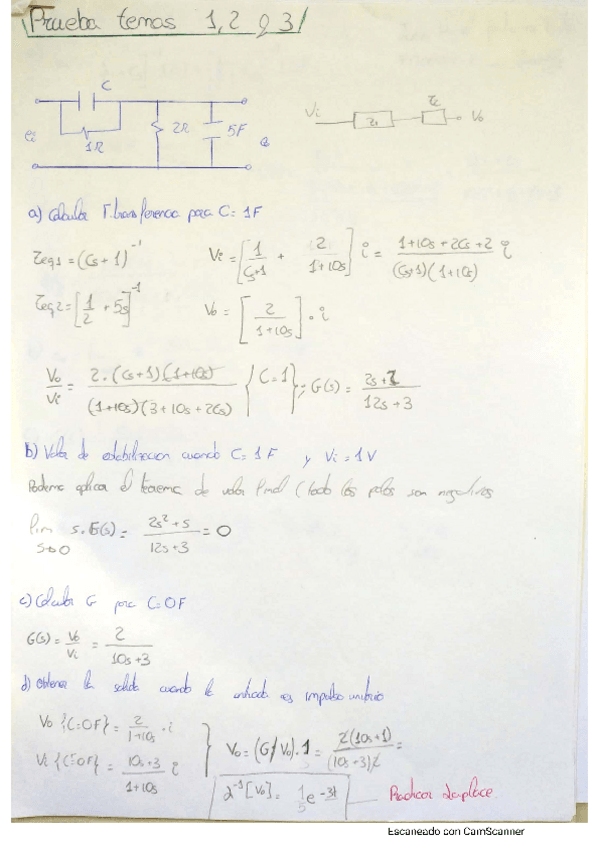 Prueba temas 1,2 y 3
C
1R
2R
5F
ei
e
Vi
Z1
Z2
Vo
a) Calcular F. transferencia para C= 1F
Zeq1 = (Cs+1)^-1
Vi = [1/(Cs+1) + 2/(1+10s)] i = (1+10s+2Cs+2)/((Cs+1)(1+10s)) i
Zeq2 = [1/2 + 5s]^-1
Vo = [2/(1+10s)] · i
Vo/Vi = 2·(Cs+1)(1+10s)/((1+10s)(3+10s+2Cs)) {C=1}; G(s) = (2s+2)/(12s+3)
b) Valor de estabilización cuando C=1F y Vi=1V
Podemo aplicar el teorema de valor final (todo los polos son negativos
lim s→0 s.G(s) = (2s²+s)/(12s+3) = 0
c) Calcular G para C=0F
G(s) = Vo/Vi = 2/(10s+3)
d) Obtener la salida cuando la entrada es impulso unitario
Vo {C=0F} = 2/(1+10s) · i
Vi {C=0F} = (10s+3)/(1+10s) i
Vo = (G/Vo).1 = 2(10s+1)/((10s+3)2) =
L^-1 [Vo] = 1/5 e
Practicar Laplace
Escaneado con CamScanner